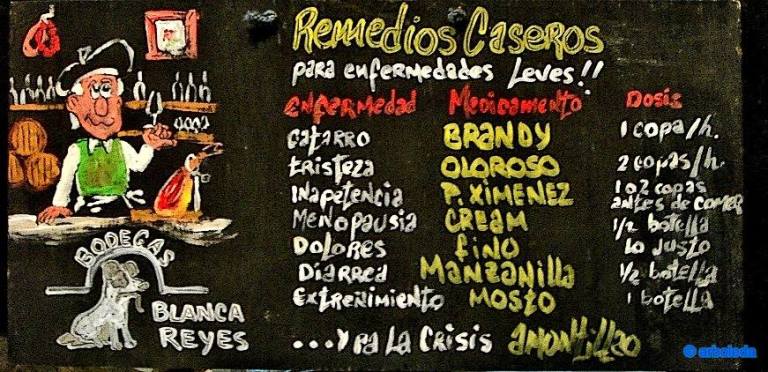 Remedios Caseros
para enfermedades Leves!!
Enfermedad Medicamento Dosis
Catarro BRANDY 1 copa/h.
tristeza OLOROSO 2 copas/h.
Inapetencia P. XIMENEZ 1 o 2 copas antes de comer
Menopausia CREAM 1/2 botella
Dolores fino lo justo
Diarrea Manzanilla 1/2 botella
Extreñimiento MOSTO 1 botella
...y pa La Crisis amontillao
BODEGAS
BLANCA
REYES
arboleda